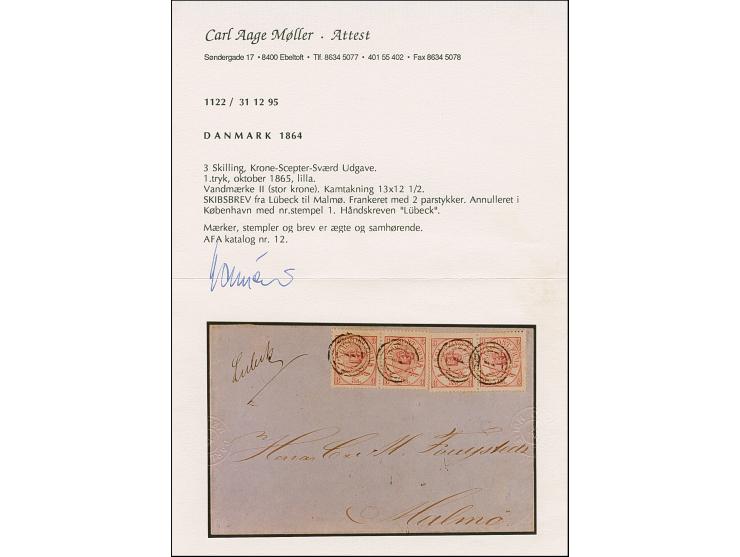 Carl Aage Møller . Attest
Søndergade 17 • 8400 Ebeltoft • Tlf. 8634 5077 • 401 55 402 • Fax 8634 5078
1122 / 31 12 95
DANMARK 1864
3 Skilling, Krone-Scepter-Sværd Udgave.
1.tryk, oktober 1865, lilla.
Vandmærke II (stor krone). Kamtakning 13x12 1/2.
SKIBSBREV fra Lübeck til Malmø. Frankeret med 2 parstykker. Annulleret i
København med nr.stempel 1. Håndskreven "Lübeck".
Mærker, stempler og brev er ægte og samhørende.
AFA katalog nr. 12.
Lubeck
Malmö